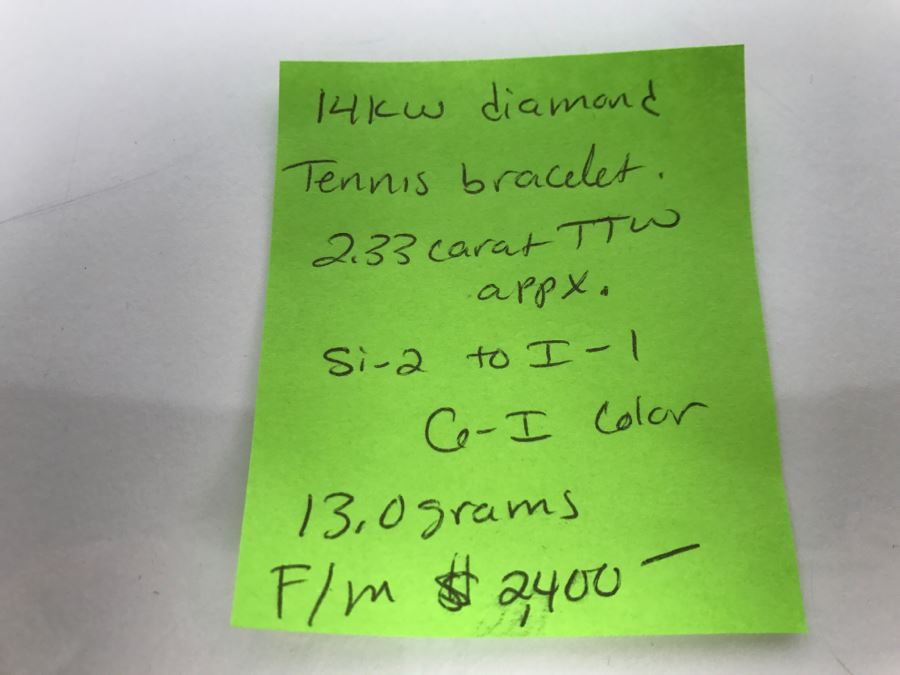 14KW diamond
Tennis bracelet.
2.33 carat TTW
appx.
Si-2 to I-1
G-I Color
13.0 grams
F/m $ 2,400 —